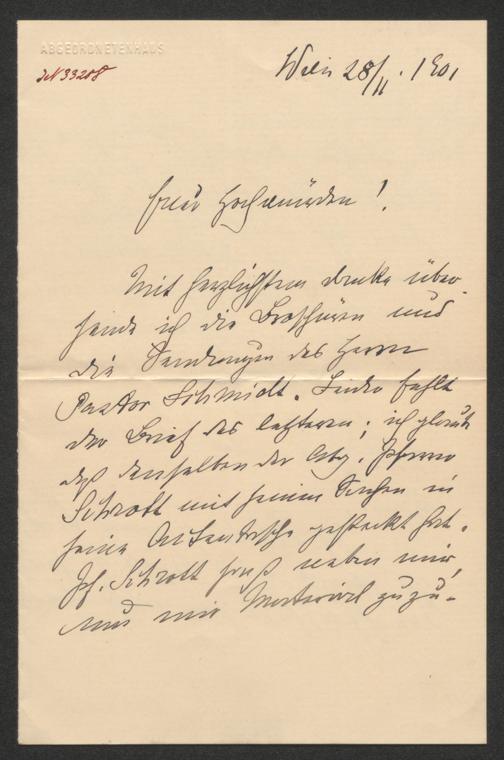 ABGEORDNETENHAUS
JN 33208
Wien 28/II. 1901
Euer Hochwürden!
Mit herzlichstem Danke über-
sende ich die Broschüren und
die Sendungen des Herrn
Pastor Schmidt. Leider fehlt
der Brief des letzteren; ich glaube
daß denselben der Abg. Pfarrer
Schrott mit seinen Sachen in
seine Actentasche gesteckt hat.
Pf. Schrott saß neben mir,
um mir Material zuzu-